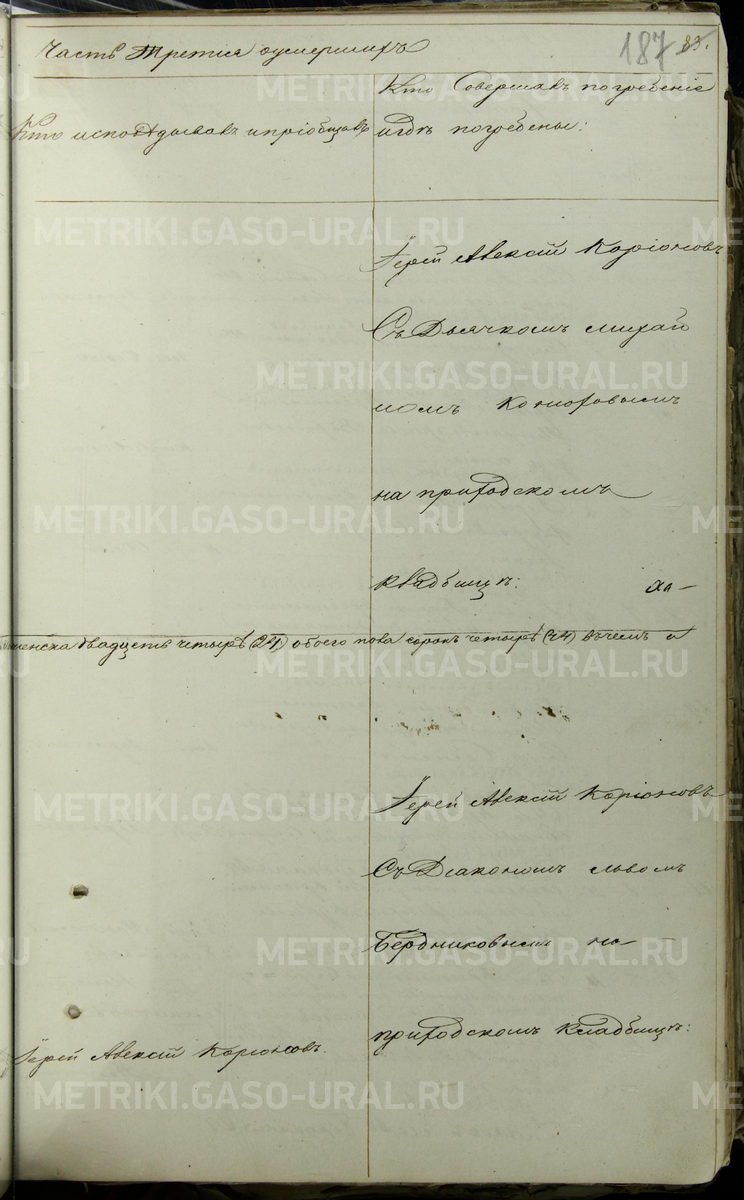 Часть третія оумершихъ
187 83.
Кто исповѣдывалъ и пріобщалъ
Кто Совершалъ погребеніе
и гдѣ погребены:
Іерей Алексій Каріоновъ
Съ Дьячкомъ михай
ломъ
на приходскомъ
кладбищѣ:
женска двадцать четыре (24) обоего пола сорокъ четыре (44) въ чемъ и
Іерей Алексій Каріоновъ
Съ Діакономъ львомъ
Бердниковымъ на
приходскомъ Кладбищѣ:
Іерей Алексій Каріоновъ.
METRIKI.GASO-URAL.RU